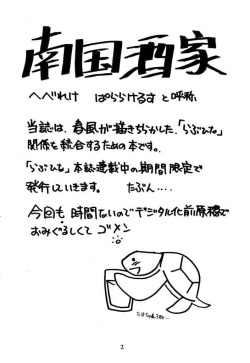 南国酒家
へべれけ ぱららけるす と呼称
当誌は、春風が描きちらかした、「らぶひな」
関係を統合するための本です。
「らぶひな」本誌連載中の期間限定で
発行していきます。 たぶん…。
今回も 時間ないのでデジタル化前原稿で
おみぐるしくて ゴメン
2